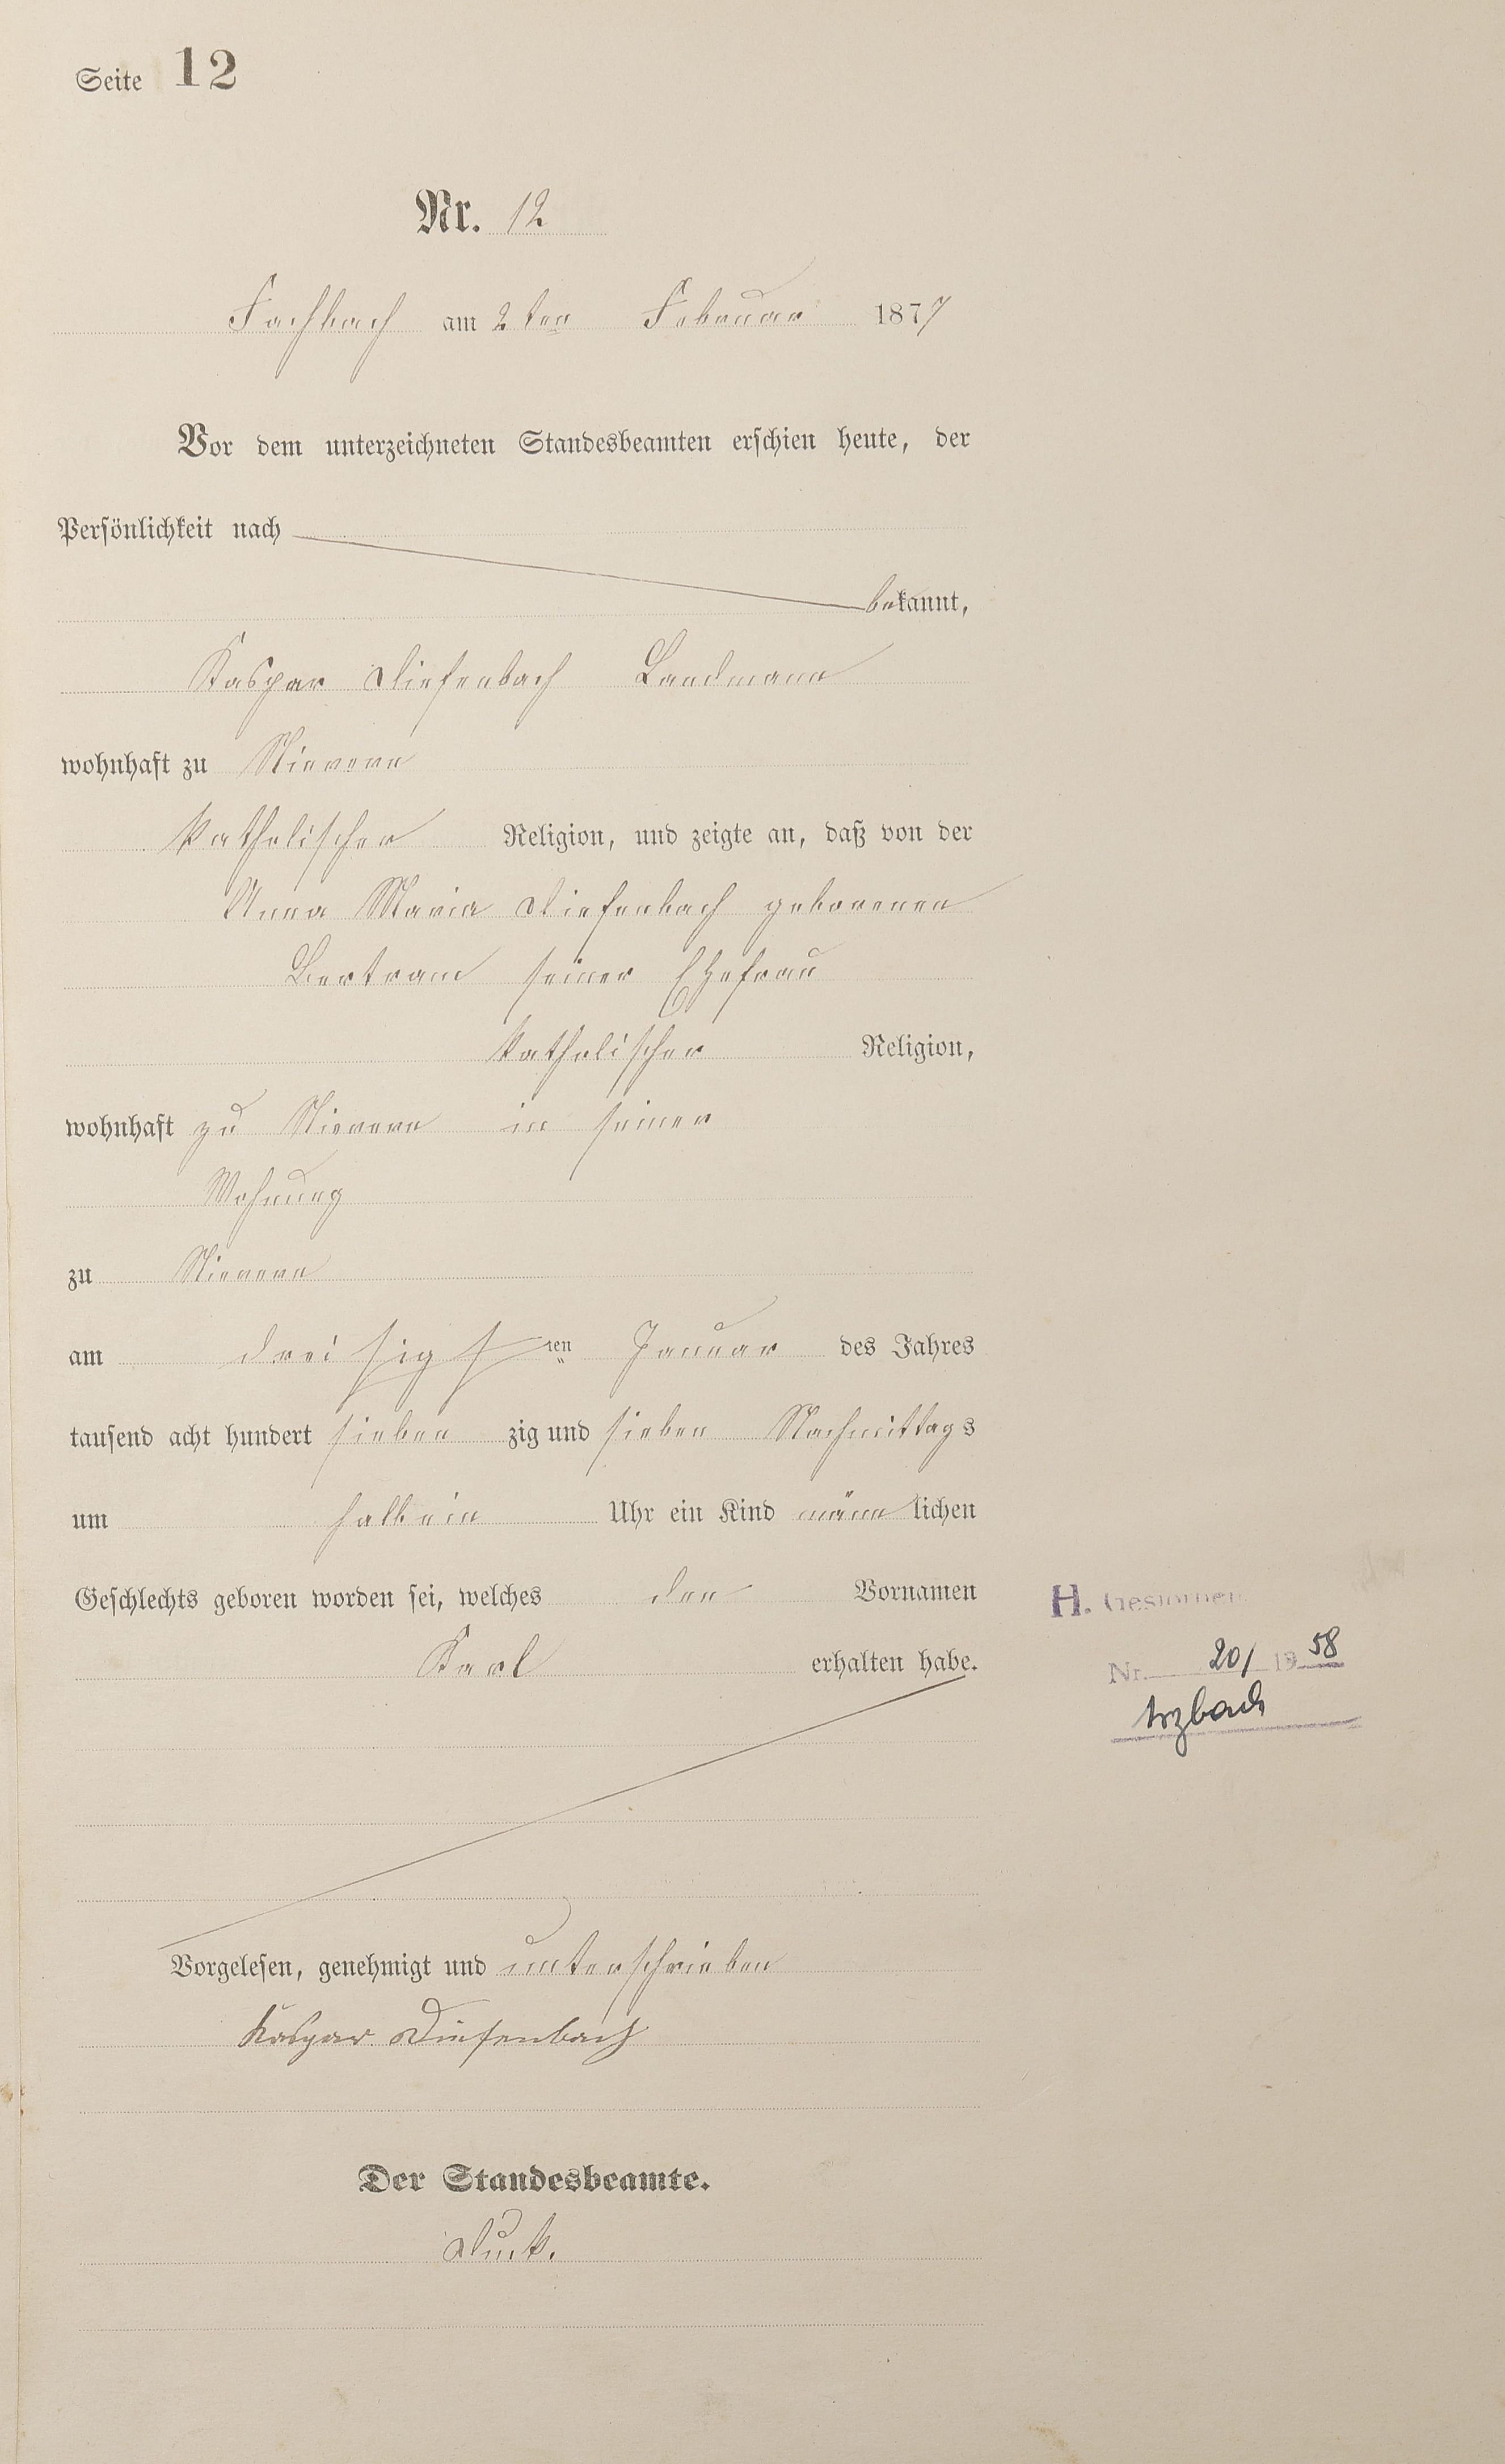 Seite 12
Nr. 12
Fachbach am 2ten Februar 1877
Vor dem unterzeichneten Standesbeamten erschien heute, der
Persönlichkeit nach
bekannt,
Kaspar Diefenbach Landmann
wohnhaft zu Nievern
katholischer Religion, und zeigte an, daß von der
Anna Maria Diefenbach geborenen
Bertram seiner Ehefrau
katholischer Religion,
wohnhaft zu Nievern in seiner
Wohnung
zu Nievern
am dreisigsten Januar des Jahres
tausend acht hundert sieben zig und sieben Nachmittags
um halb ein Uhr ein Kind männlichen
Geschlechts geboren worden sei, welches den Vornamen
H. Gestorben
Karl erhalten habe.
Nr. 20/ 1958
Arzbach
Vorgelesen, genehmigt und unterschrieben
Kaspar Diefenbach
Der Standesbeamte.